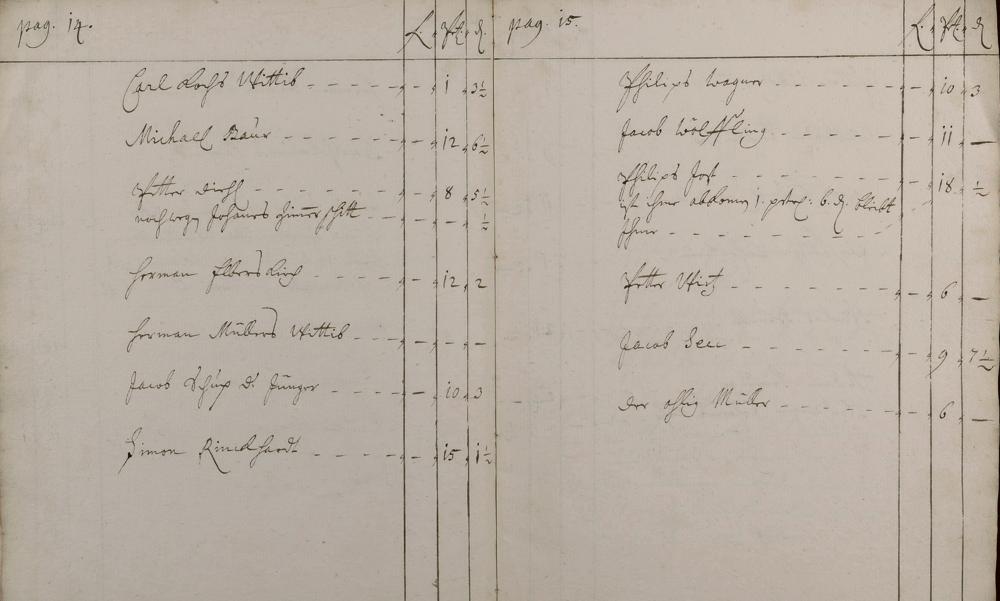 pag. 14. L. ß. d.
Carl Kochs Wittib - - - - - - - 1 3½
Michael Baur - - - - - - - - 12 6½
Petter Diehl - - - - - - - - 8 5½
noch weg Johanes Zimerschitt - - - - - ½
Herman Elberskirch - - - - - - 12 2
Herman Müllers Wittib - - - - - -
Jacob Schup d. Jünger - - - - - 10 3
Simon Rinckhardt - - - - - - 15 1½
pag. 15. L. ß. d.
Philips Wagner - - - - - - - 10 3
Jacob Wölffling - - - - - - - 11 —
Philips Jost - - - - - - - - 18 ½
ist ihme abkomen 1. 6. d. bleibt
Ihme - - - - - - - -
Petter Wirth - - - - - - - - 6 —
Jacob See - - - - - - - - 9 7½
der ohlig Müller - - - - - - - 6 —